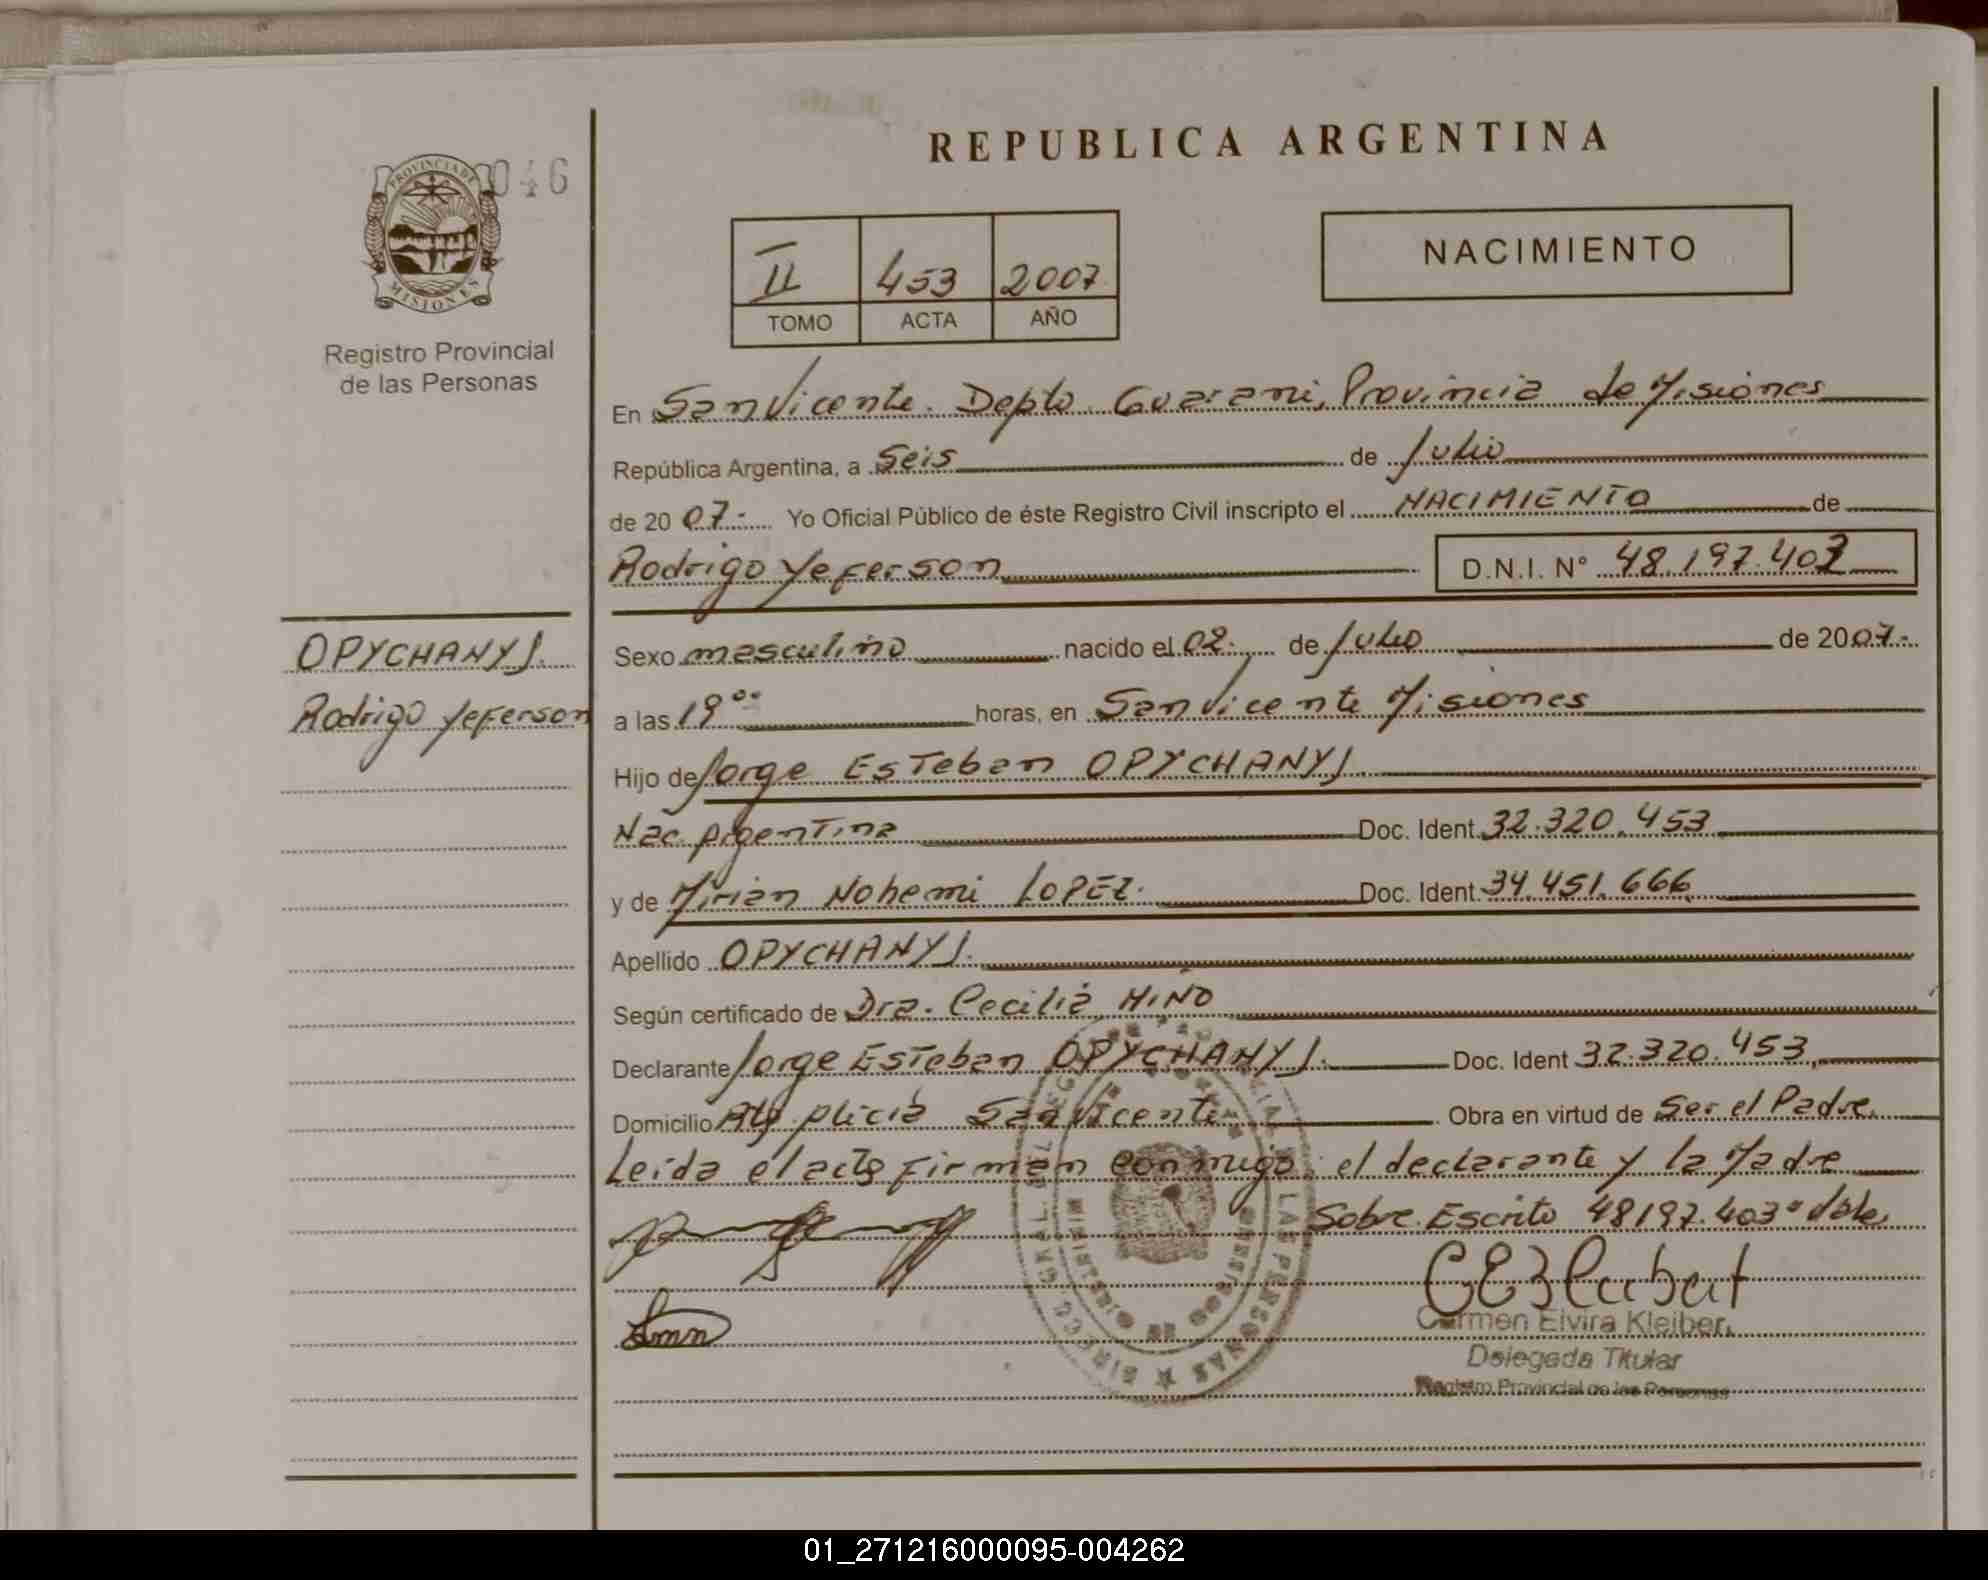 REPUBLICA ARGENTINA
046
PROVINCIA DE
MISIONES
Registro Provincial
de las Personas
II 453 2007
TOMO ACTA AÑO
NACIMIENTO
En San Vicente. Depto. Guarani, Provincia de Misiones
República Argentina, a Seis de Julio
de 2007.- Yo Oficial Público de éste Registro Civil inscripto el NACIMIENTO de
Rodrigo Yeferson D.N.I. N° 48.197.403
OPYCHANYJ.
Rodrigo Yeferson
Sexo masculino nacido el 02. de Julio de 2007.-
a las 19°° horas, en San Vicente Misiones
Hijo de Jorge Esteban OPYCHANYJ.
Nac. Argentina Doc. Ident. 32.320.453
y de Mirian Nohemi LOPEZ. Doc. Ident. 34.451.666
Apellido OPYCHANYJ.
Según certificado de Dra. Cecilia MINO
Declarante Jorge Esteban OPYCHANYJ. Doc. Ident 32.320.453
Domicilio Alg plicia San Vicente Obra en virtud de Ser el Padre
Leida el acto firman conmigo, el declarante y la Madre
Sobre Escrito 48197.403" Vale
Carmen Elvira Kleiber
Delegada Titular
Registro Provincial de las Personas
01_271216000095-004262